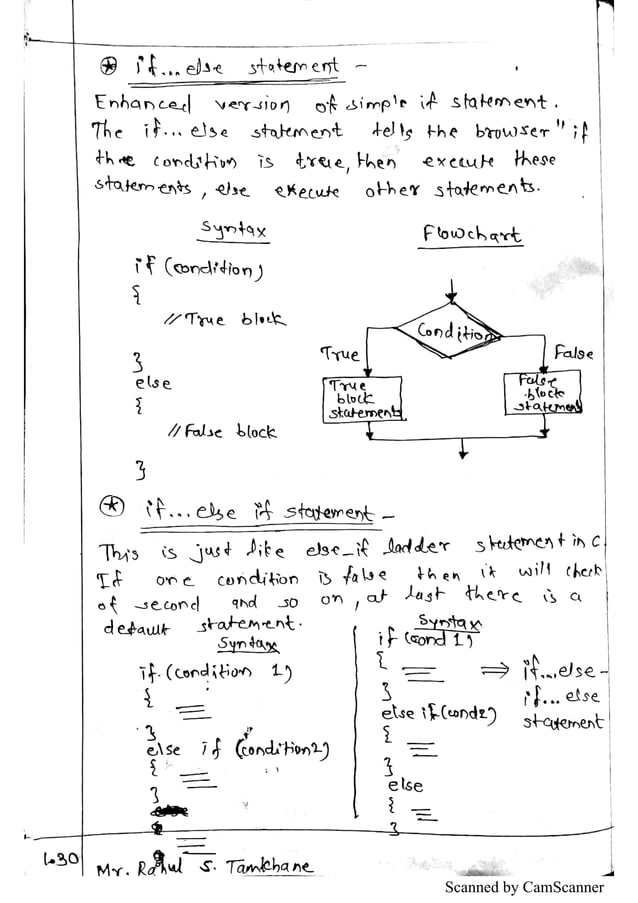 ⊛ if...else statement -
Enhanced version of simple if statement.
The if... else statement tells the browser "if
the condition is true, then execute these
statements, else execute other statements.
Syntax
if (condition)
{
// True block
}
else
{
// False block
}
Flowchart
Condition
True
False
True
block
statements
False
block
statement
⊛ if...else if statement -
This is just like else_if ladder statement in C.
If one condition is false then it will check
of second and so on, at last there is a
default statement.
Syntax
if (condition 1)
{
}
else if (condition2)
{
}
Syntax
if (cond 1)
{
}
else if (cond2)
{
}
else
{
}
⇒ if...else-
if... else
statement
1.30
Mr. Rahul S. Tamkhane
Scanned by CamScanner